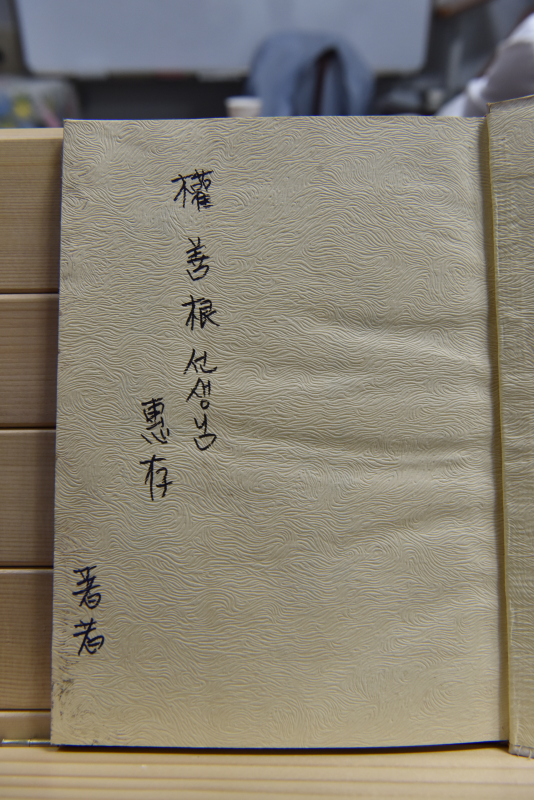 權善根선생님
惠存
著者